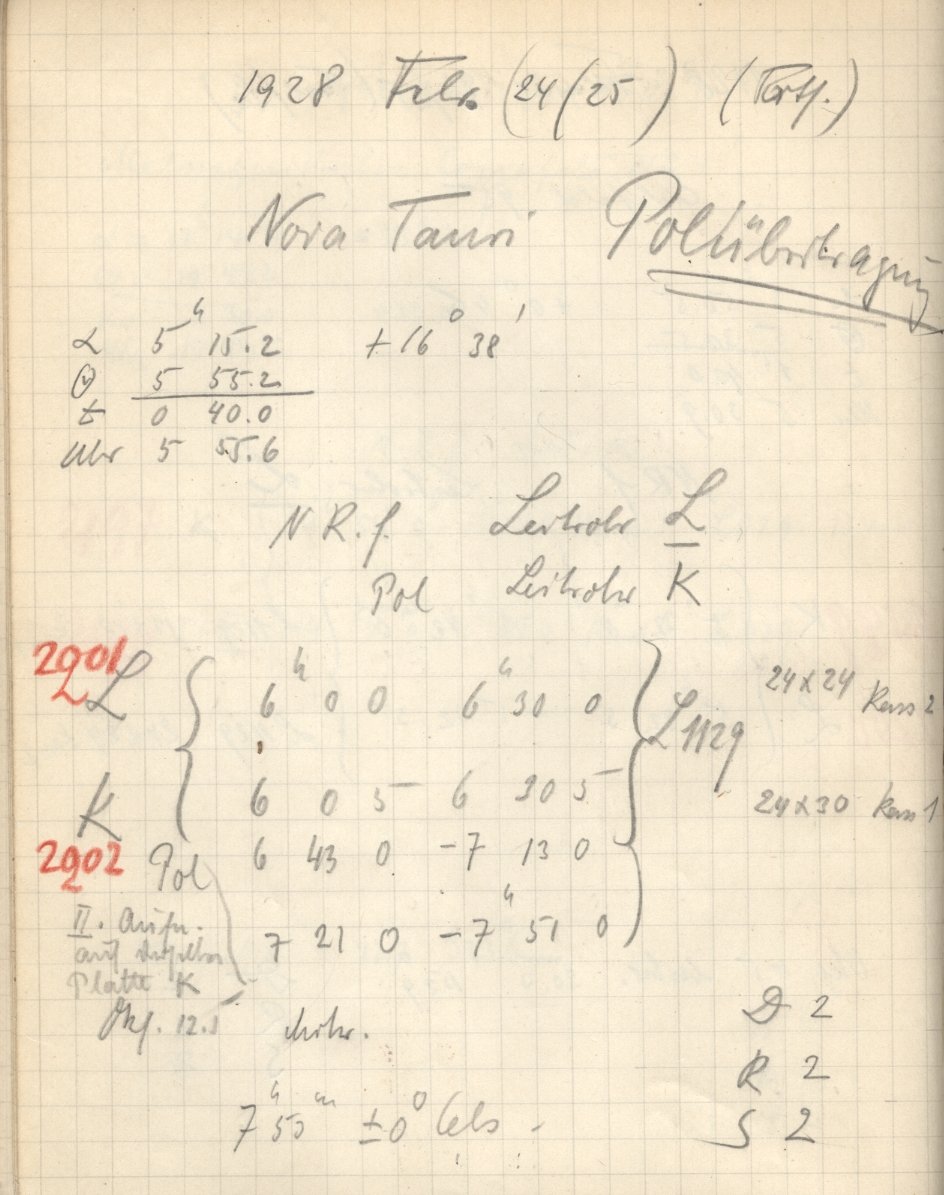 1928 Febr. (24/25) (Forts.)
Nova Tauri Polübertragung
α 5ʰ 15.2 +16° 38'
5 55.2
t 0 40.0
Uhr 5 55.6
N.R.f. Leitrohr L
Pol Leitrohr K
2901 L 6ʰ 0 0 6ʰ 30 0 L1129 24x24 Kass 2
K 6 0 5 6 30 5 24x30 Kass 1
2902 Pol 6 43 0 - 7 13 0
7 21 0 - 7ʰ 51 0
II. Aufn.
auf derselben
Platte K
12.5
D 2
R 2
7ʰ 50ᵐ ±0° Cels.
S 2